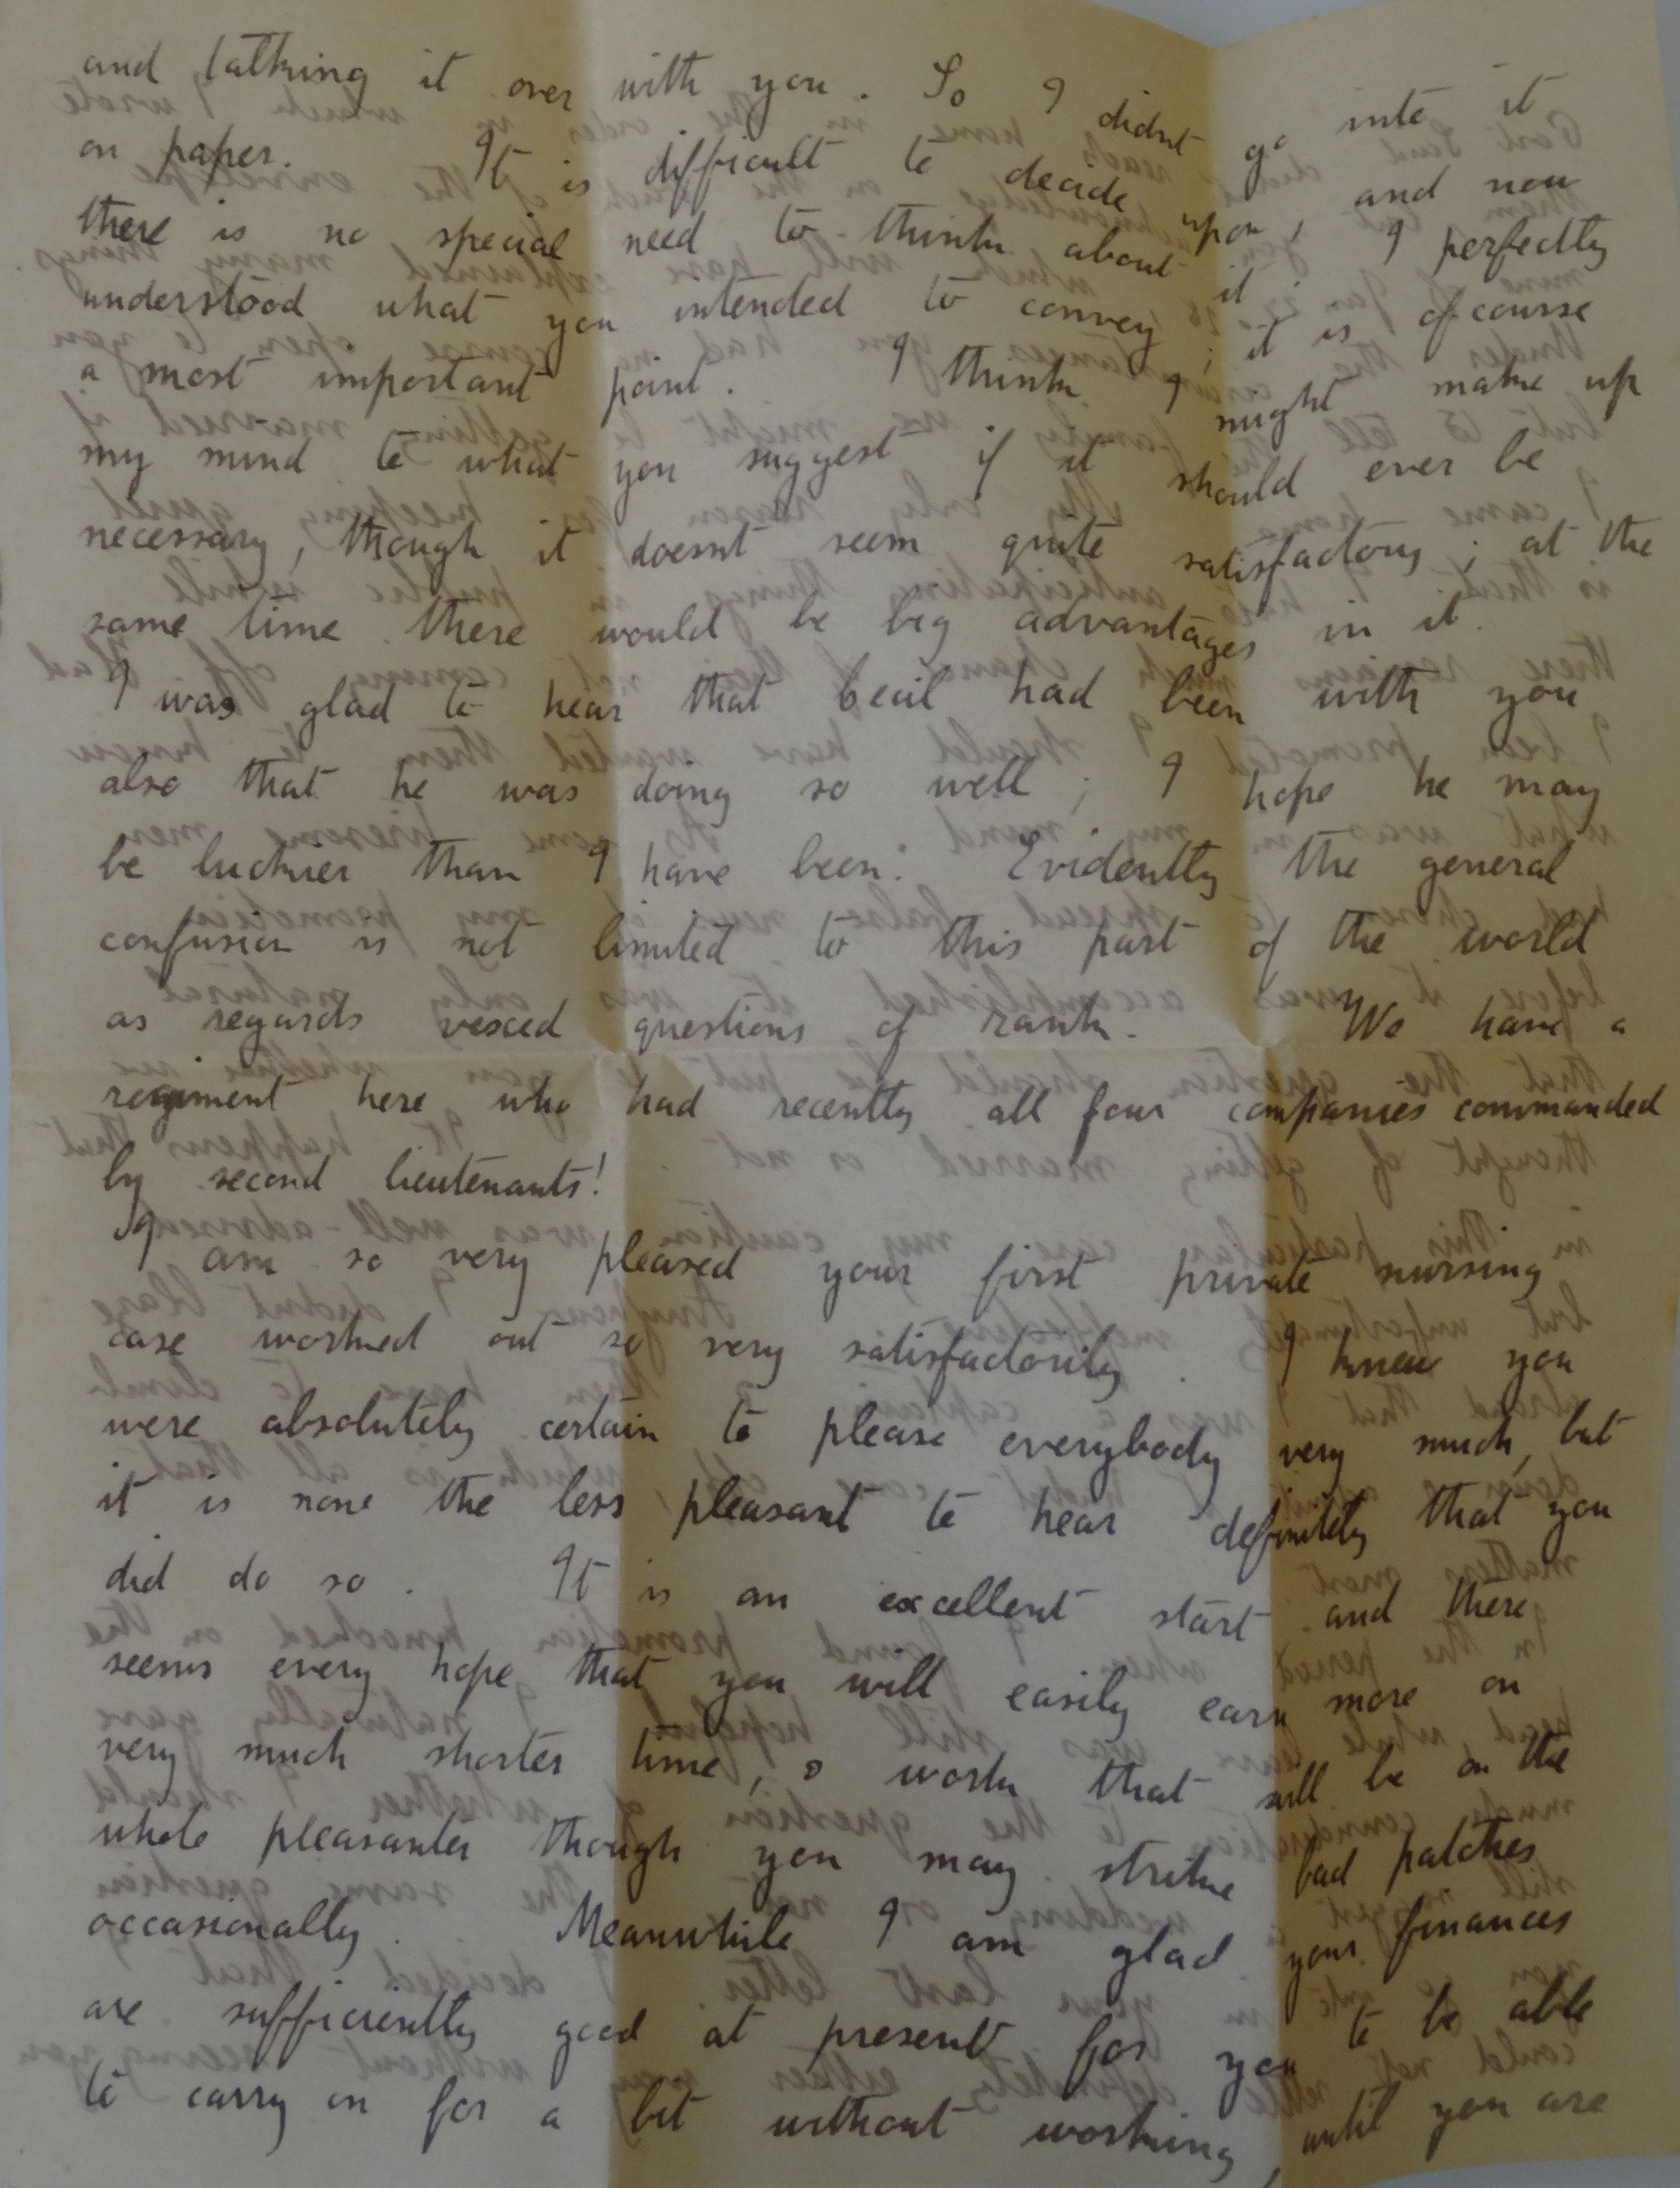 and talking it over with you. So I didnt go into it
on paper. It is difficult to decide upon, and now
there is no special need to think about it. I perfectly
understood what you intended to convey; it is of course
a most important point. I think I might make up
my mind to what you suggest if it should ever be
necessary, though it doesnt seem quite satisfactory; at the
same time there would be big advantages in it.
I was glad to hear that Cecil had been with you
also that he was doing so well; I hope he may
be luckier than I have been. Evidently the general
confusion is not limited to this part of the world
as regards vexed questions of rank. We have a
regiment here who had recently all four companies commanded
by second lieutenants!
I am so very pleased your first private nursing
case worked out so very satisfactorily. I knew you
were absolutely certain to please everybody very much, but
it is none the less pleasant to hear definitely that you
did do so. It is an excellent start and there
seems every hope that you will easily earn more on
very much shorter time, & work that will be on the
whole pleasanter though you may strike bad patches
occasionally. Meanwhile I am glad your finances
are sufficiently good at present for you to be able
to carry on for a bit without working, until you are